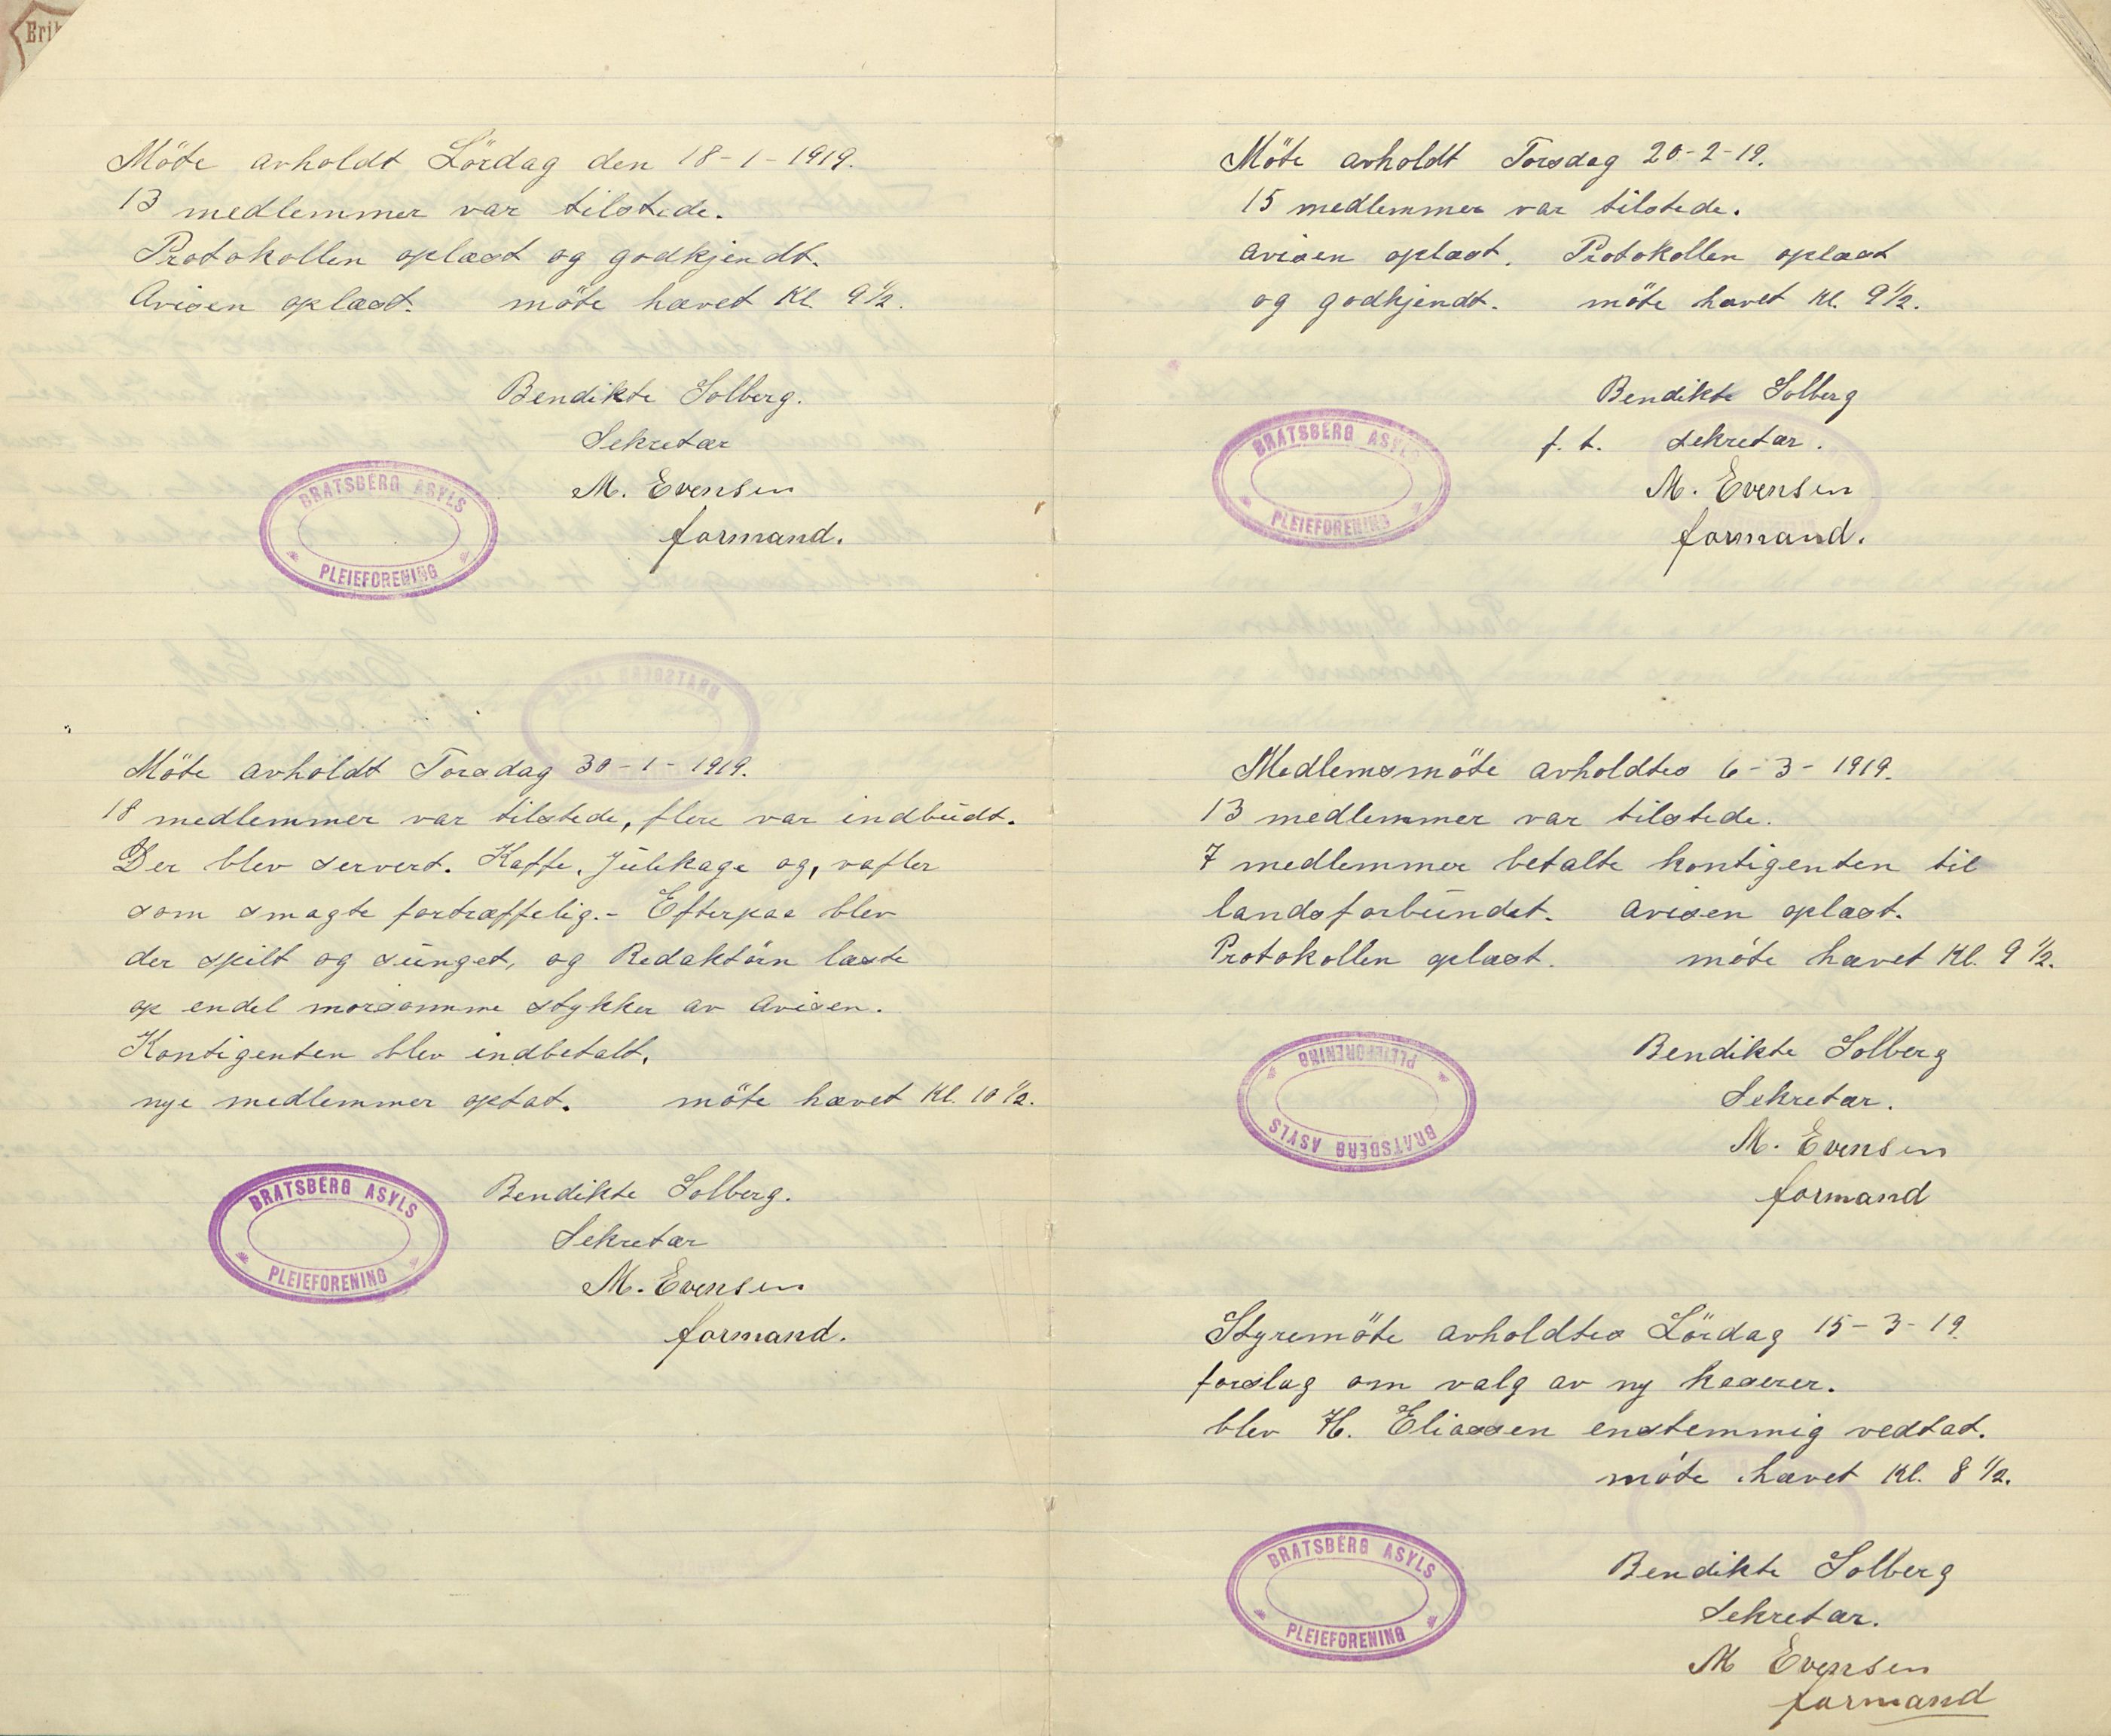 Erik
Möte avholdt Lördag den 18-1-1919.
13 medlemmer var tilstede.
Protokollen oplæst og godkjendt.
Avisen oplæst. möte hævet Kl. 9 1/2.
Bendikte Solberg.
Sekretær
M. Evensen
formand.
BRATSBERG ASYLS
PLEIEFORENING
Möte avholdt Torsdag 30-1-1919.
18 medlemmer var tilstede, flere var indbudt.
Der blev servert. Kaffe, Julekage og, vafler
som smagte fortræffelig.- Efterpaa blev
der spilt og sunget, og Redaktörn læste
op endel morsomme stykker av Avisen.
Kontigenten blev indbetalt,
nye medlemmer optat. möte hævet Kl. 10 1/2.
Bendikte Solberg.
Sekretær
M. Evensen
formand.
BRATSBERG ASYLS
PLEIEFORENING
Möte avholdt Torsdag 20-2-19.
15 medlemmer var tilstede.
Avisen oplæst. Protokollen oplæst
og godkjendt. möte hævet Kl. 9 1/2.
Bendikte Solberg
f. t. sekretær.
M. Evensen
formand.
BRATSBERG ASYLS
PLEIEFORENING
Medlemsmöte avholdtes 6-3-1919.
13 medlemmer var tilstede.
7 medlemmer betalte kontigenten til
landsforbundet. Avisen oplæst.
Protokollen oplæst. möte hævet Kl. 9 1/2.
Bendikte Solberg
Sekretær.
M. Evensen
formand
PLEIEFORENING
BRATSBERG ASYLS
Styremöte avholdtes Lördag 15-3-19.
forslag om valg av ny kaserer.
blev H. Eliassen enstemmig vedtat.
möte hævet Kl. 8 1/2.
Bendikte Solberg
Sekretær.
M Evensen
formand
BRATSBERG ASYLS
PLEIEFORENING